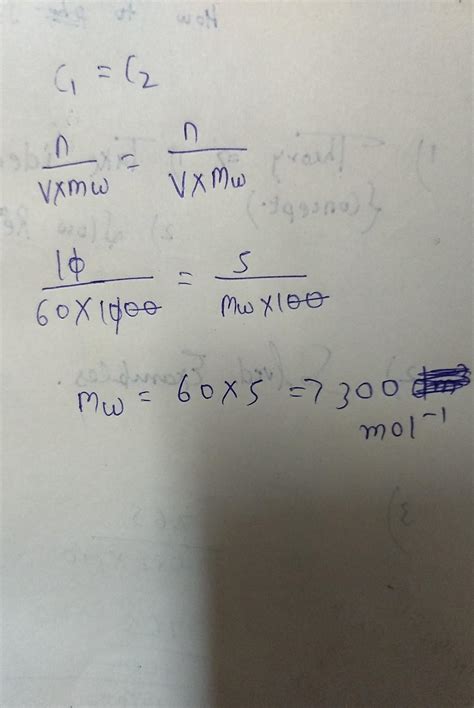 C₁ = C₂
n / V×mw = n / V×Mw
10 / 60×1000 = 5 / Mw×100
Mw = 60×5 => 300
mol⁻¹